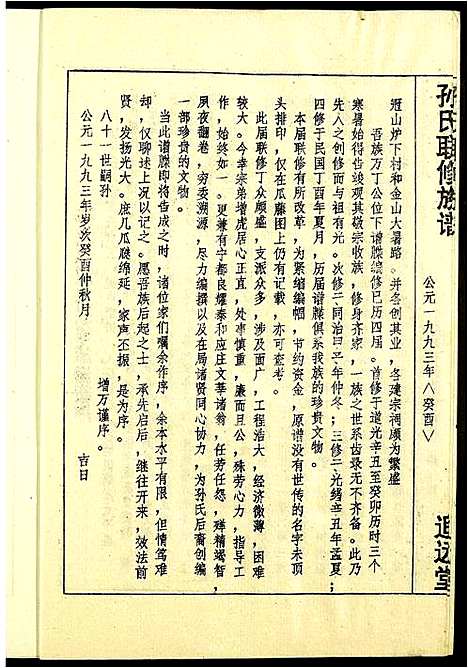 孙氏联修族谱
公元一九九三年∧癸酉∨
追远堂
冠山炉下村和金山大暑路。并各创其业，各建宗祠颇为繁盛
吾族万丁公位下谱牒编修已历四届。首修于道光辛丑至癸卯历时三个
寒暑始得告竣观其敬宗收族，修身齐家，一族之世系齿录无不齐备。此乃
先人之创修而与祖有光。次修二同治甲子年仲冬；三修二光绪辛丑年孟夏；
四修于民国丁酉年夏月，历届谱牒俱系我族的珍贵文物。
本届联修有所改革，为紧缩编幅，节约资金，原谱没有世传的名字未顶
头排印，仅在瓜藤图上仍有记载，亦可查考。
此届联修丁众顾盛，支派众多，涉及面广，工程浩大，经济微薄，困难
较大。今幸宗弟增虎居心正直，处事慎重，廉而且公，殊劳心力，指导工
作，始终如一。更兼有宁都良耀泰和应庄文华诸翁，任劳任怨，殚精竭智，
夙夜翻卷，穷委溯源，尽力编撰以及在局诸贤同心协力，为孙氏后裔创编
一部珍贵的文物。
当此谱牒即将告成之时，诸位家们嘱余作序，余本水平有限，但情笃难
却，仅聊述上况以记之。愿吾族后起之士，承先启后，继往开来，效法前
贤，发扬光大。庶几瓜瓞绵延，家声丕振，是为序。
八十一世嗣孙　增万谨序。
公元一九九三年岁次癸酉仲秋月　吉日